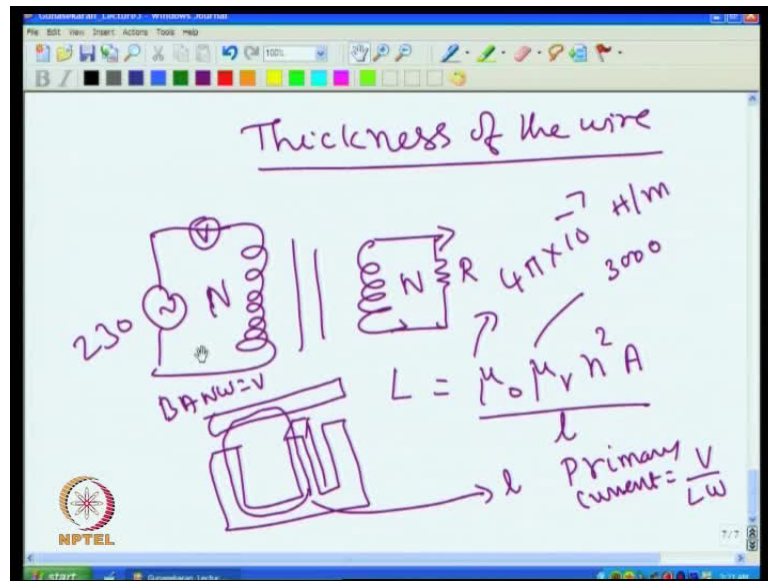 Gunasekaran_Lecture3 - Windows Journal
File Edit View Insert Actions Tools Help
100%
B I
Thickness of the wire
230
V
N
N
R
4π×10⁻⁷ H/m
3000
BANW=V
L = μ₀ μᵣ n² A
l
l
Primary
current = V
LW
NPTEL
7/7
start
Gunasekaran_Lectur...